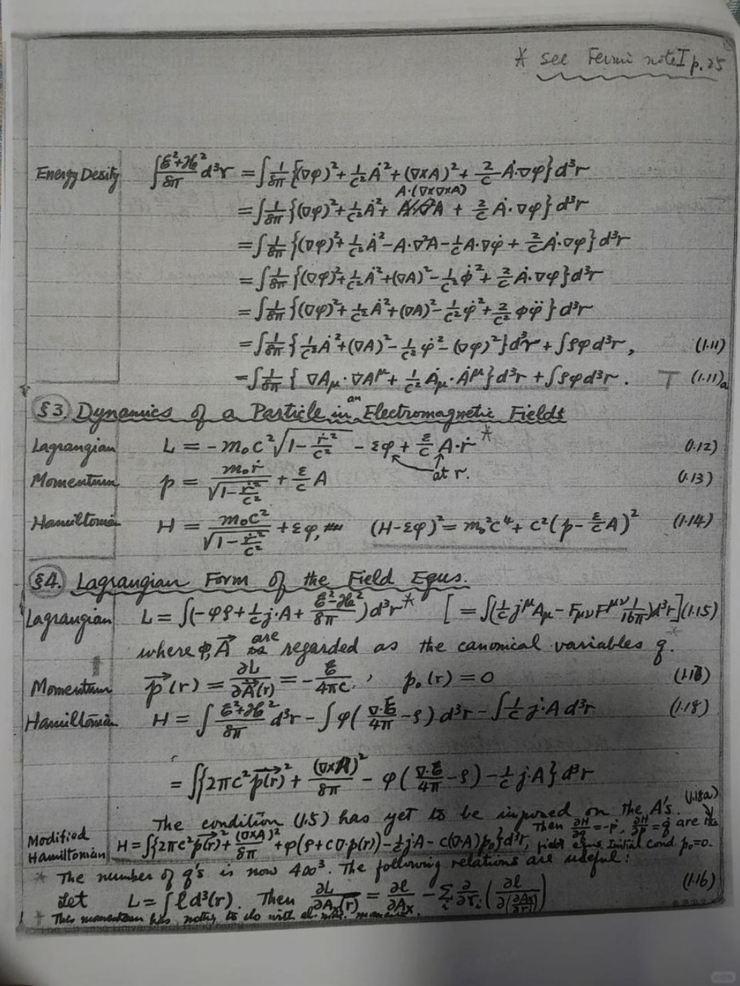 * see Fermi note I p. 25
Energy Desity ∫ (ℰ²+ℋ²)/8π d³r = ∫ 1/8π {(∇φ)² + 1/c² Ȧ² + (∇×A)² + 2/c Ȧ·∇φ} d³r
A·(∇×∇×A)
= ∫ 1/8π {(∇φ)² + 1/c² Ȧ² + + 2/c Ȧ·∇φ} d³r
= ∫ 1/8π {(∇φ)² + 1/c² Ȧ² − A·∇²A − 1/c A·∇φ̇ + 2/c Ȧ·∇φ} d³r
= ∫ 1/8π {(∇φ)² + 1/c² Ȧ² + (∇A)² − 1/c² φ̇² + 2/c Ȧ·∇φ} d³r
= ∫ 1/8π {(∇φ)² + 1/c² Ȧ² + (∇A)² − 1/c² φ̇² + 2/c² φφ̈} d³r
= ∫ 1/8π {1/c² Ȧ² + (∇A)² − 1/c² φ̇² − (∇φ)²} d³r + ∫ρφ d³r, (1.11)
= ∫ 1/8π { ∇A_μ · ∇A^μ + 1/c² Ȧ_μ · Ȧ^μ } d³r + ∫ρφ d³r. T (1.11)a
§3. Dynamics of a Particle in an Electromagnetic Fields
Lagrangian L = −m₀c² √(1 − ṙ²/c²) − εφ + ε/c A·ṙ * (1.12)
at r.
Momentum p = m₀ṙ/√(1 − ṙ²/c²) + ε/c A (1.13)
Hamiltonian H = m₀c²/√(1 − ṙ²/c²) + εφ, (H−εφ)² = m₀²c⁴ + c²(p − ε/c A)² (1.14)
§4. Lagrangian Form of the Field Equs.
Lagrangian L = ∫(−φρ + 1/c j·A + (ℰ²−ℋ²)/8π) d³r * [ = ∫(1/c j^μ A_μ − F_μν F^μν 1/16π) d³r ] (1.15)
where φ, A⃗ are regarded as the canonical variables q. *
Momentum p⃗(r) = ∂L/∂Ȧ⃗(r) = − ℰ/4πc, p₀(r) = 0 (1.18)
Hamiltonian H = ∫ (ℰ²+ℋ²)/8π d³r − ∫ φ( ∇·ℰ/4π − ρ) d³r − ∫ 1/c j·A d³r (1.18)
= ∫{2πc² p⃗(r)² + (∇×A)²/8π − φ( ∇·ℰ/4π − ρ) − 1/c j·A} d³r
The condition (1.5) has yet to be imposed on the A's. (1.18a)
Then ∂H/∂q = −ṗ, ∂H/∂p = q̇ are the
Modified Hamiltonian H = ∫{2πc² p⃗(r)² + (∇×A)²/8π + φ(ρ + c∇·p(r)) − 1/c jA − c(∇A)p₀} d³r, field equs Initial cond. p₀=0.
* The number of q's is now 4∞³. The following relations are useful:
Let L = ∫ℓ d³(r). Then ∂L/∂A_x(r) = ∂ℓ/∂A_x − Σ_i ∂/∂r_i (∂ℓ/∂(∂A_x/∂r_i)) (1.16)
This momentum has nothing to do with